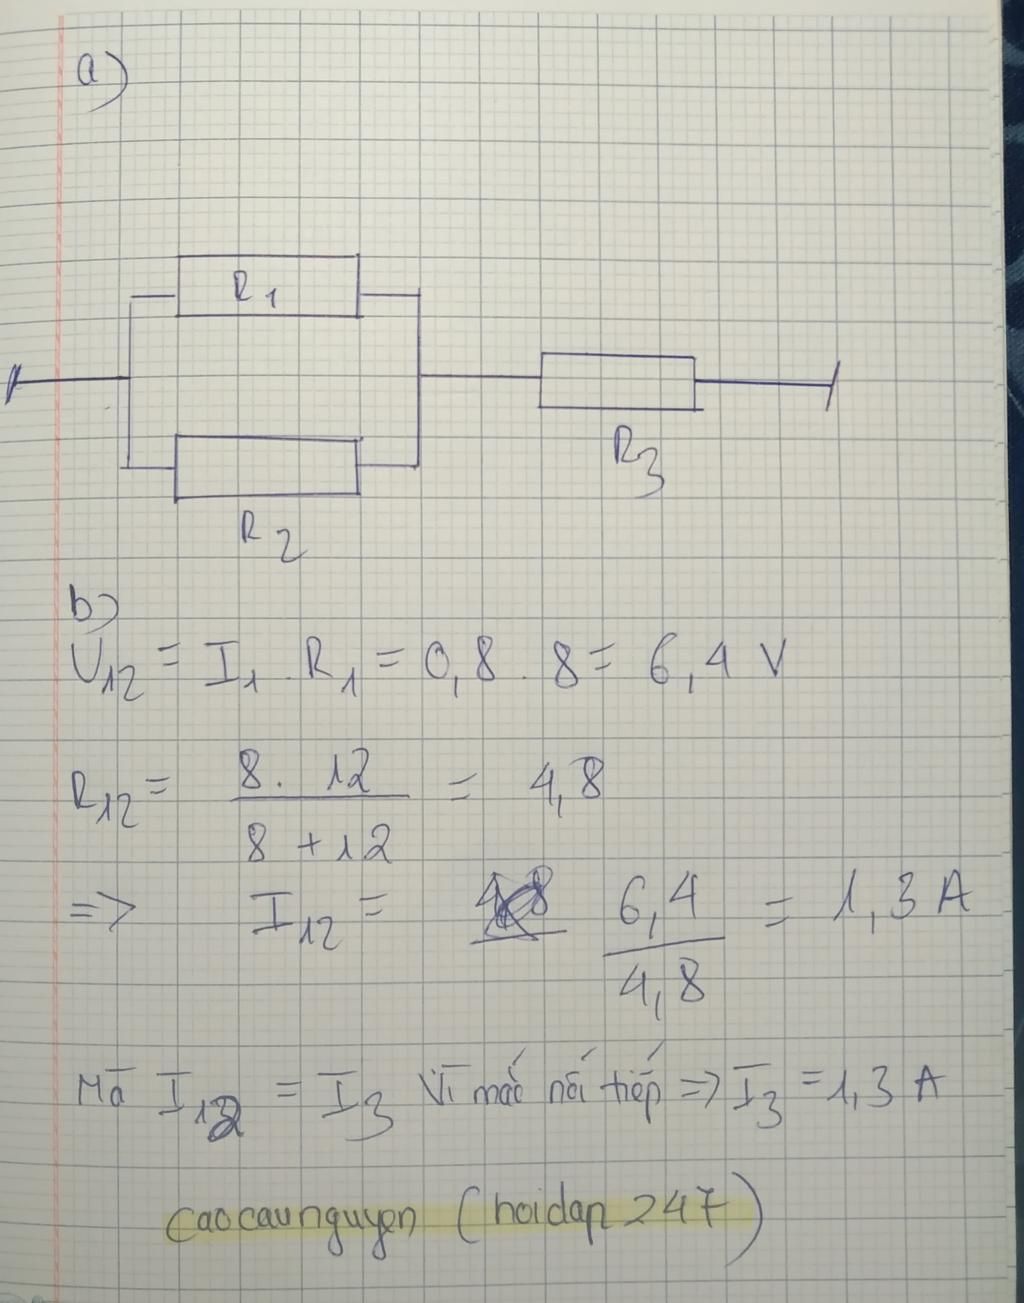 a)
R1
R3
R2
b)
U12 = I1 . R1 = 0,8 . 8 = 6,4 V
R12 = 8 . 12 / 8 + 12 = 4,8
=> I12 = 6,4 / 4,8 = 1,3 A
Mà I12 = I3 Vì mắc nối tiếp => I3 = 1,3 A
caocaunguyen (hoidap 247)